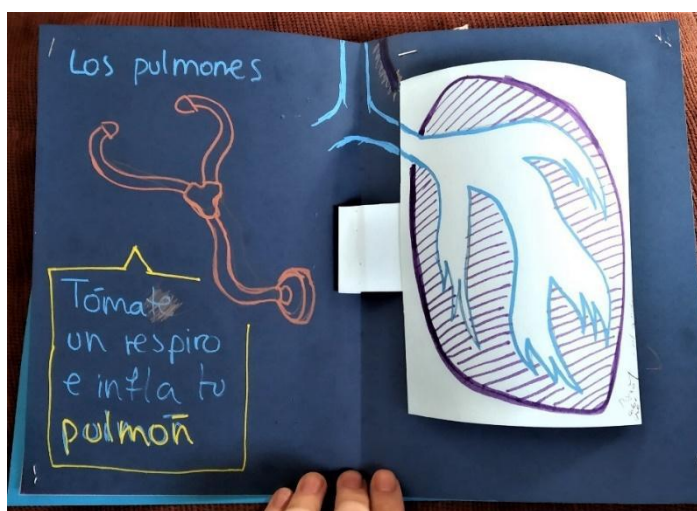 Los pulmones
Tómate
un respiro
e infla tu
pulmoñ